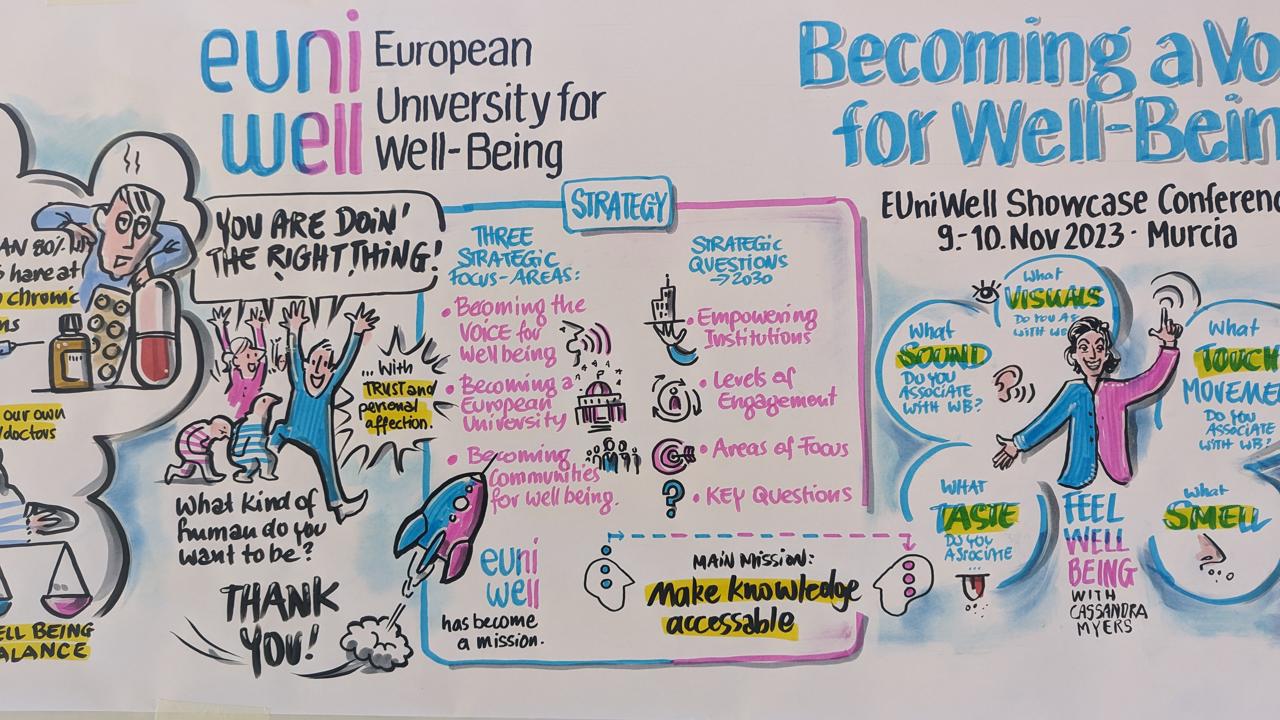 euni
well
European
University for
Well-Being
Becoming a Vo
for Well-Bein
EUniWell Showcase Conferenc
9.-10. Nov 2023 · Murcia
AN 80%
have at
chronic
ns
our own
doctors
ELL BEING
ALANCE
YOU ARE DOIN'
THE RIGHT THING!
... With
TRUST and
personal
affection.
What kind of
human do you
want to be?
THANK
YOU!
STRATEGY
THREE
STRATEGIC
FOCUS-AREAS:
• Becoming the
VOICE for
Well being
• Becoming a
European
University
• Becoming
Communities
for well being.
STRATEGIC
QUESTIONS
→ 2030
• Empowering
Institutions
• Levels of
Engagement
• Areas of Focus
• KEY Questions
euni
well
has become
a mission.
MAIN MISSION:
Make knowledge
accessable
What
VISUALS
DO YOU AS
WITH WB
What
SOUND
DO YOU
ASSOCIATE
WITH WB?
What
TOUCH
MOVEME
DO YOU
ASSOCIATE
WITH WB?
WHAT
TASTE
DO YOU
ASSOCIATE
What
SMELL
FEEL
WELL
BEING
WITH
CASSANDRA
MYERS